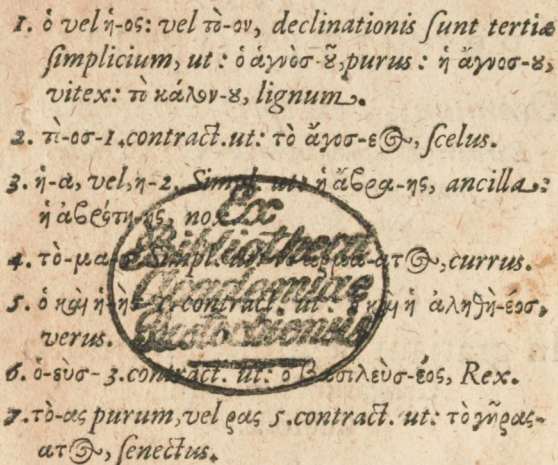 1. ὁ vel ἡ-ος: vel τὸ-ον, declinationis sunt tertiæ
simplicium, ut: ὁ ἁγνὸσ-ȣ͂, purus: ἡ ἄγνοσ-ȣ,
vitex: τὸ κάλον-ȣ, lignum.
2. τὶ-οσ-1. contract. ut: τὸ ἄγοσ-εος, scelus.
3. ἡ-α, vel, η-2. Simpl. ut: ἡ ἅβρα-ης, ancilla:
ἡ ἁβρότη-ης, nox.
4. τὸ-μα- Simpl. ut: ἅρμα-ατος, currus.
5. ὁ καὶ ἡ-ὴς contract. ut: ὁ καὶ ἡ ἀληθὴ-έος,
verus.
6. ὁ-εὺσ-3. contract. ut: ὁ βασιλεὺσ-έος, Rex.
7. τὸ-ας purum, vel ρας 5. contract. ut: τὸ γῆρας-
ατος, senectus.
Ex
Bibliotheca
Academiae